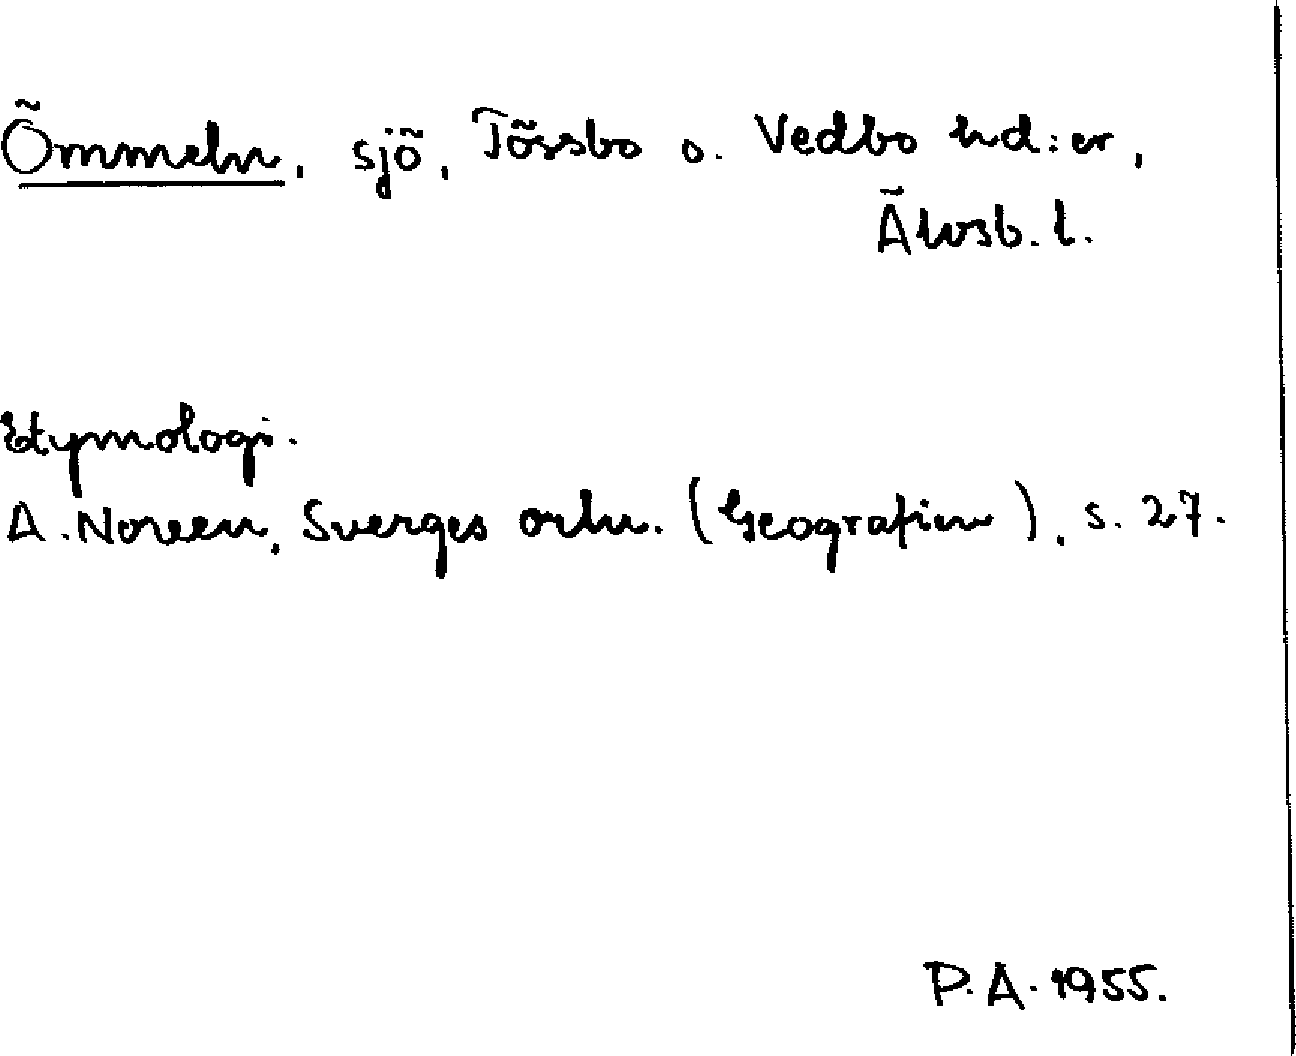 Ömmeln, sjö, Tössbo o. Vedbo hd:er,
Älvsb. l.
Etymologi.
A. Noreen, Sverges ortn. (Geografien), s. 27.
P. A. 1955.